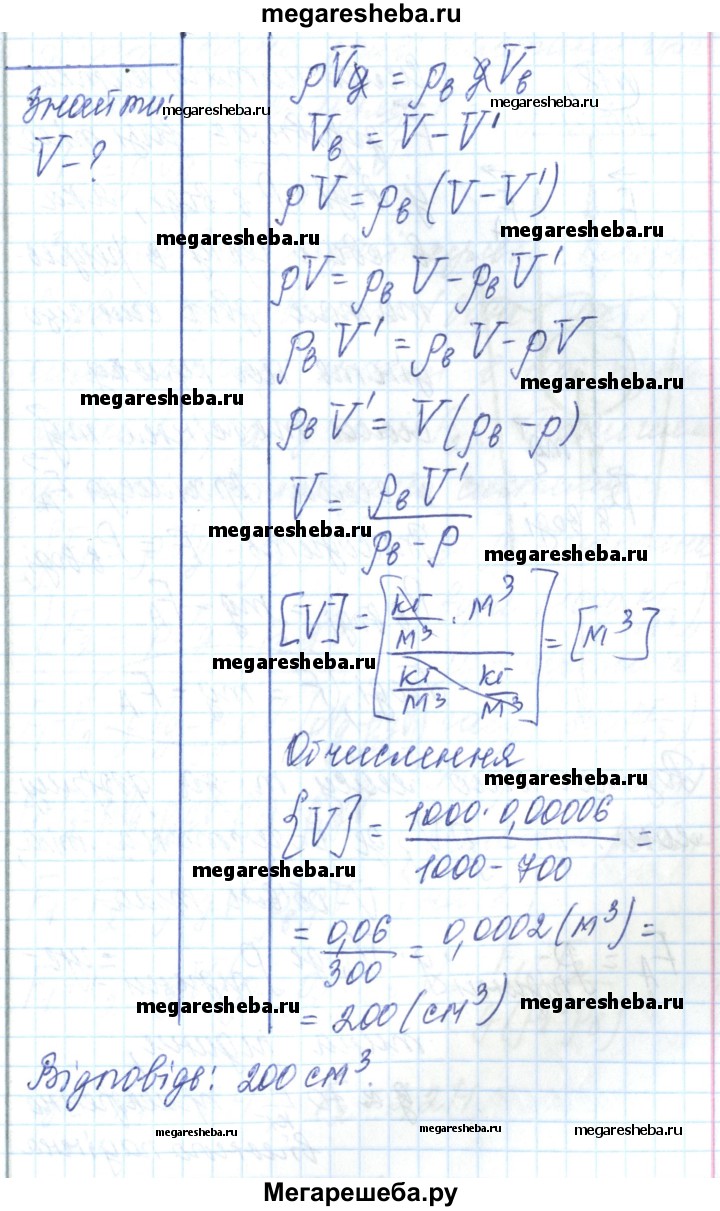 megaresheba.ru
ρVg = ρв g Vв
Знайти:
megaresheba.ru
megaresheba.ru
V - ?
Vв = V - V'
ρV = ρв (V - V')
megaresheba.ru
megaresheba.ru
ρV = ρв V - ρв V'
ρв V' = ρв V - ρV
megaresheba.ru
megaresheba.ru
ρв V' = V(ρв - ρ)
V = ρв V' / (ρв - ρ)
megaresheba.ru
megaresheba.ru
[V] = [кг/м³ · м³ / (кг/м³ - кг/м³)] = [м³]
megaresheba.ru
Обчислення
megaresheba.ru
{V} = 1000 · 0,00006 / (1000 - 700) =
megaresheba.ru
= 0,06 / 300 = 0,0002 (м³) =
megaresheba.ru
megaresheba.ru
= 200 (см³)
Відповідь: 200 см³.
megaresheba.ru
megaresheba.ru
megaresheba.ru
Мегарешеба.ру